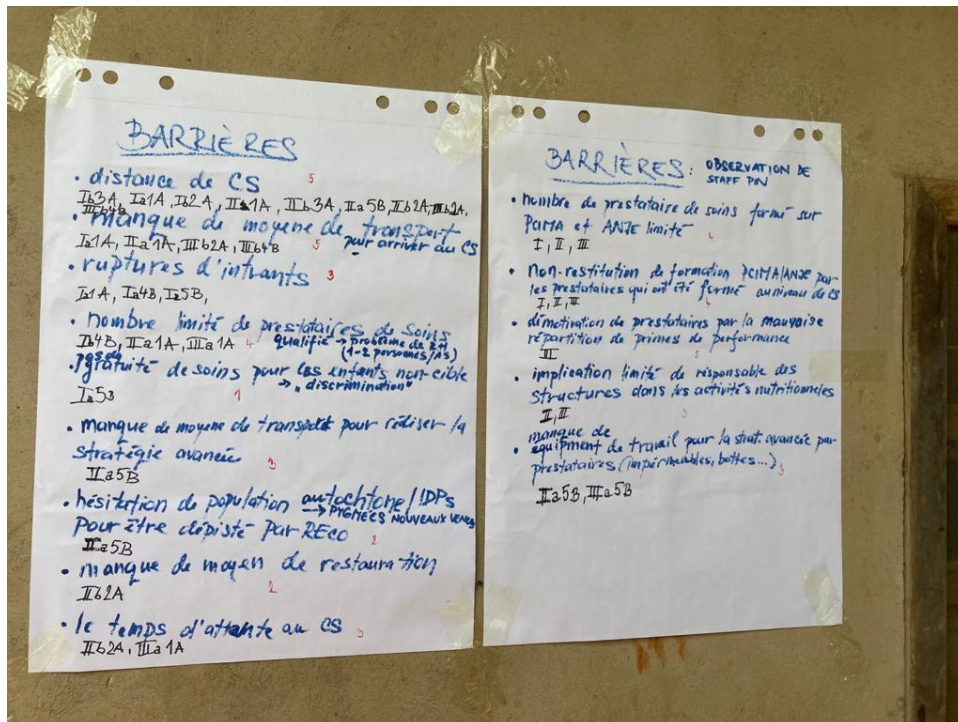 BARRIÈRES
• distance de CS 5
Ib3A, Ia1A, Ib2A, IIa1A, IIb3A, IIa5B, IIb2A, IIIb2A,
IIIb4B
• manque de moyene de transport
pour arriver au CS
Ia1A, IIa1A, IIIb2A, IIIb4B 5
• ruptures d'intrants 3
Ia1A, Ia4B, Ia5B,
• nombre limité de prestataires de soins
qualifié → problème de RH
(1-2 personnes/AS)
Ib4B, IIa1A, IIIa1A 4
pas de
• gratuité de soins pour les enfants non-cible
→ „discrimination"
Ia5B 1
• manque de moyene de transport pour réaliser la
stratégie avancée 3
IIa5B
• hésitation de population autochtone/IDPs
→ PYGMÉES NOUVEAUX VENUS
pour être dépisté par RECO 2
IIa5B
• manque de moyen de restauration
IIb2A 2
• le temps d'attante au CS 3
IIb2A, IIIa1A
BARRIÈRES: OBSERVATION DE
STAFF PIN
• nombre de prestataire de soins formé sur
PCIMA et ANJE limité
I, II, III
• non-restitution de formation PCIMA/ANJE par
les prestataires qui ont été formé au niveau de CS
I, II, III
• démotivation de prestataires par la mauvaise
répartition de primes de performance
II
• implication limité de responsable des
structures dans les activités nutritionnelles
II, III
manque de
• equipment de travail pour la strat. avancée par
prestataires (imperméables, bottes...)
IIa5B, IIIa5B